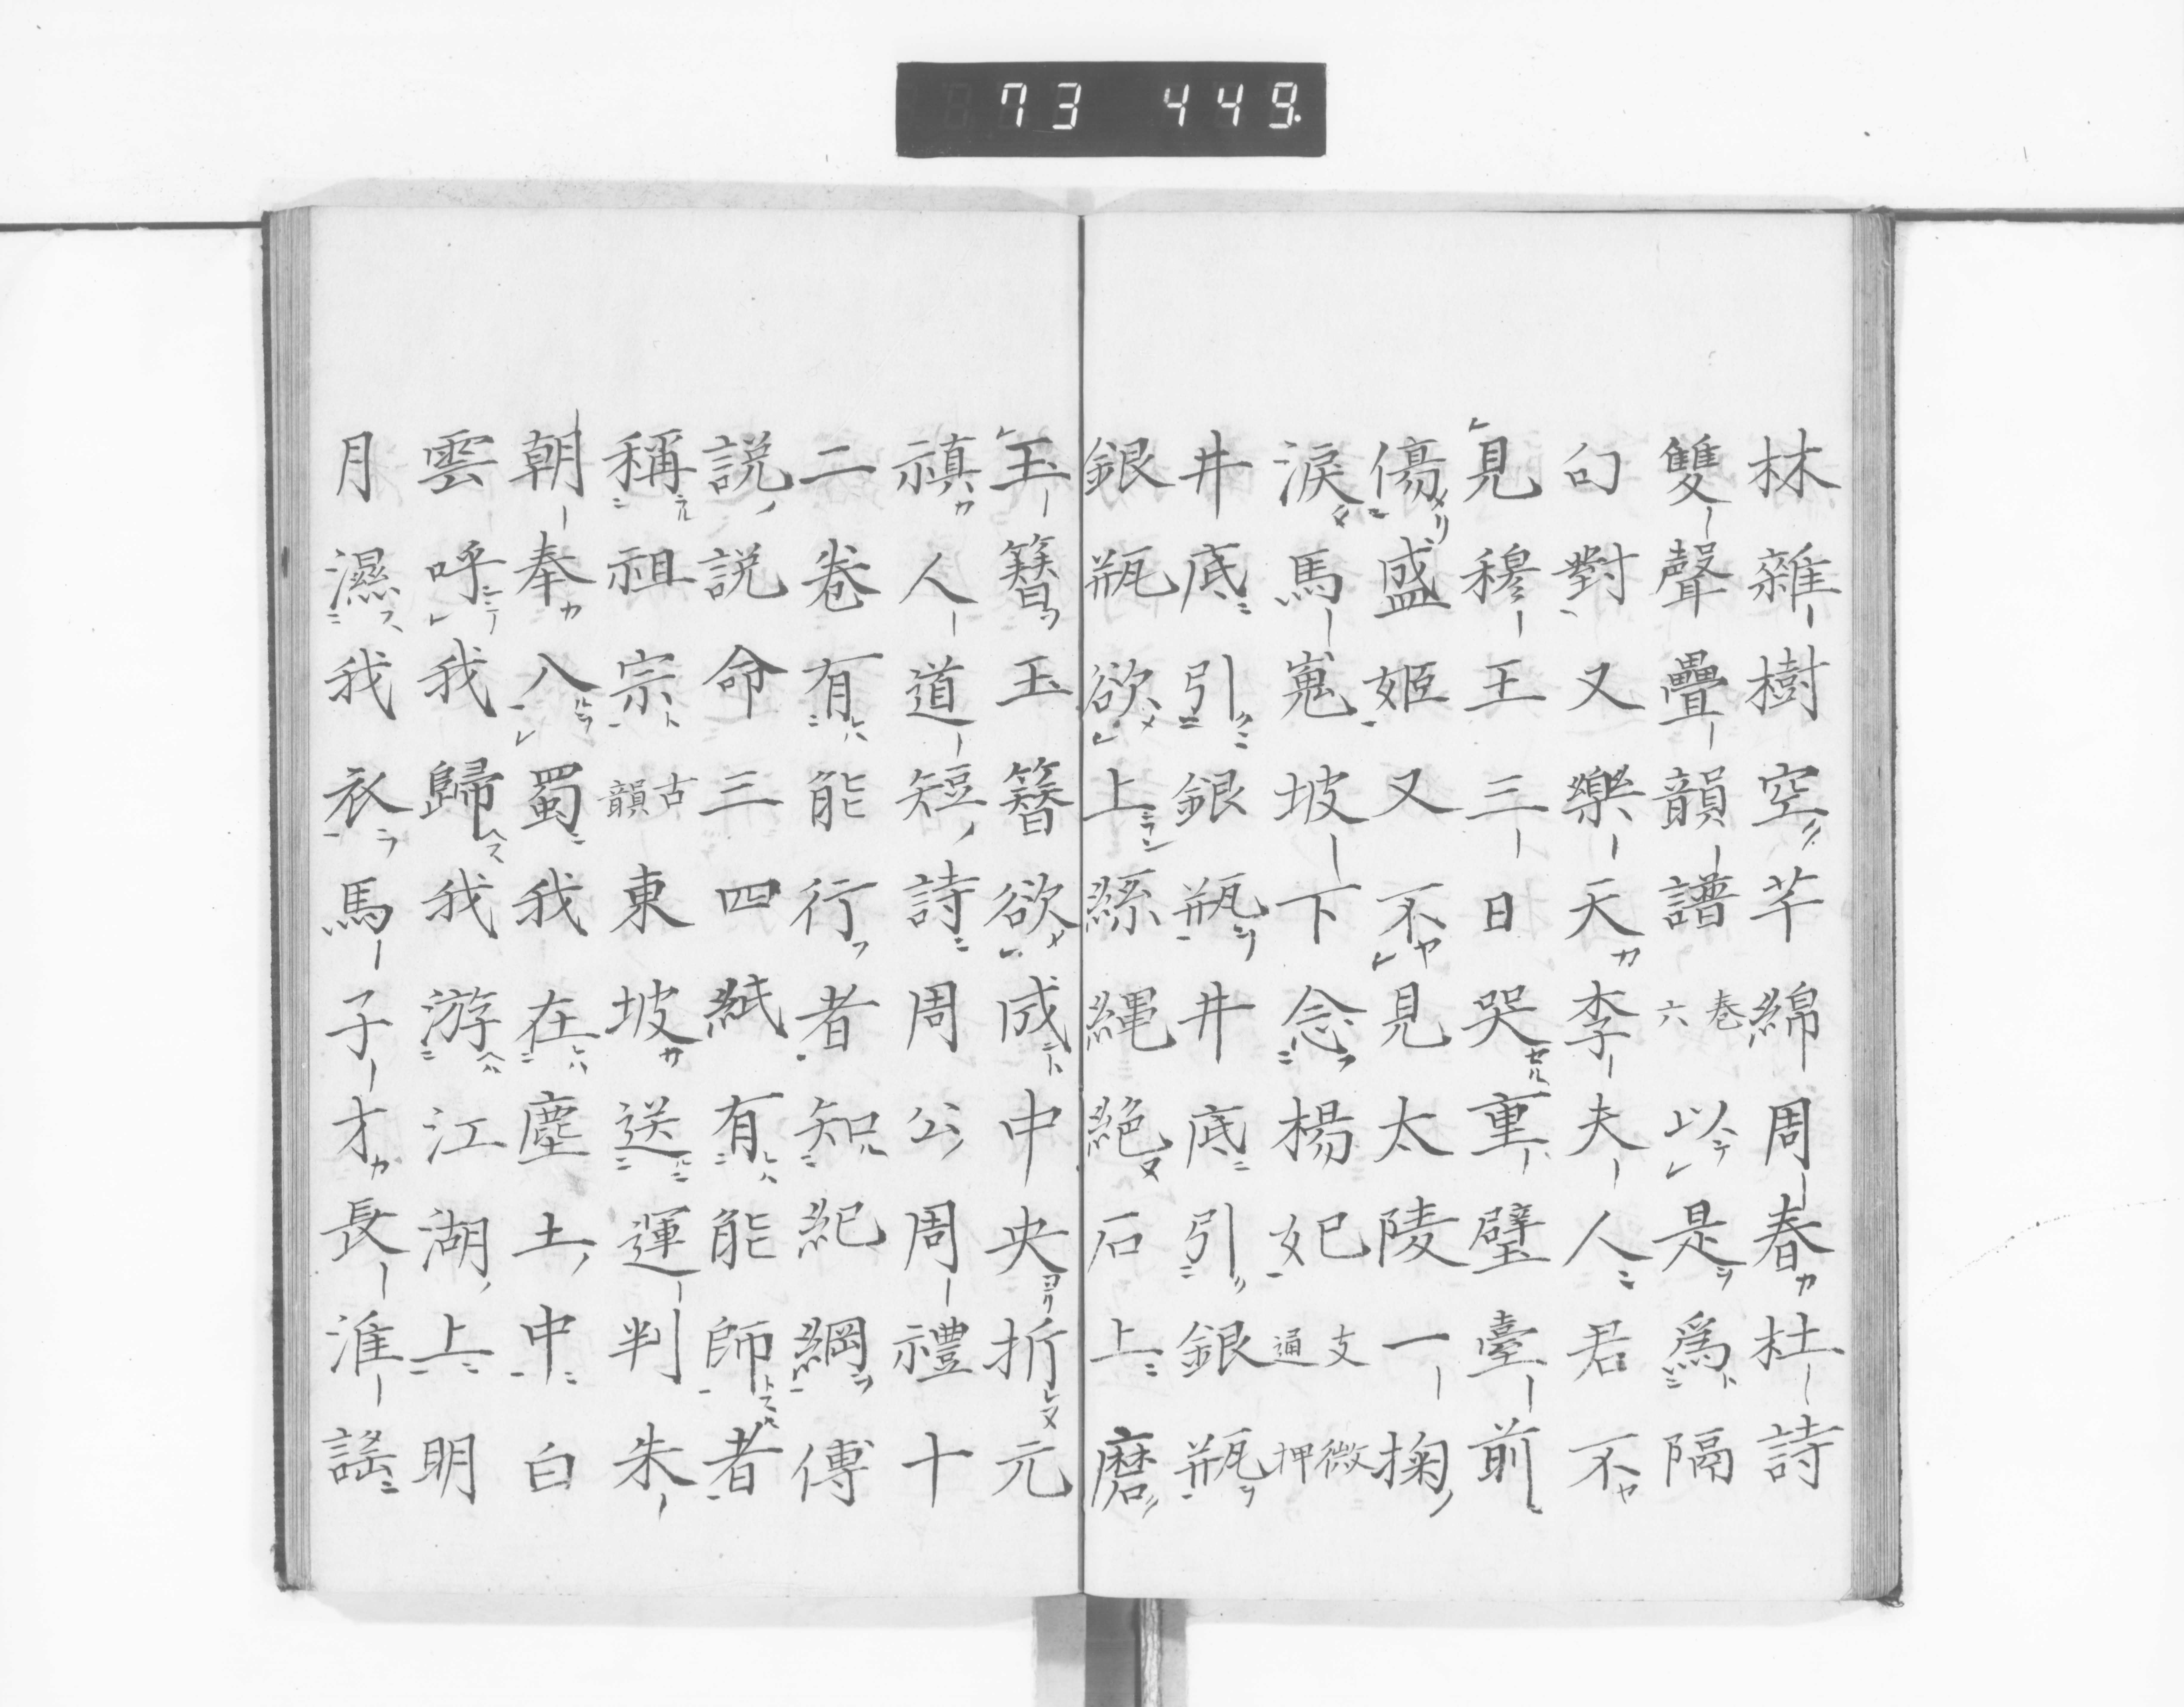 73 449.
林雜樹空芊綿周春杜詩
雙聲疊韻譜卷六以是爲隔
句對又樂天李夫人君不
見穆王三日哭重璧臺前
傷盛姬又不見太陵一掬
淚馬嵬坡下念楊妃支微通押
井底引銀瓶井底引銀瓶
銀瓶欲上絲繩絶石上磨
玉簪玉簪欲成中央折元
禛人道短詩周公周禮十
二卷有能行者知紀綱傅
説説命三四紙有能師者
稱祖宗古韻東坡送運判朱
朝奉入蜀我在塵土中白
雲呼我歸我游江湖上明
月濕我衣馬子才長淮謠